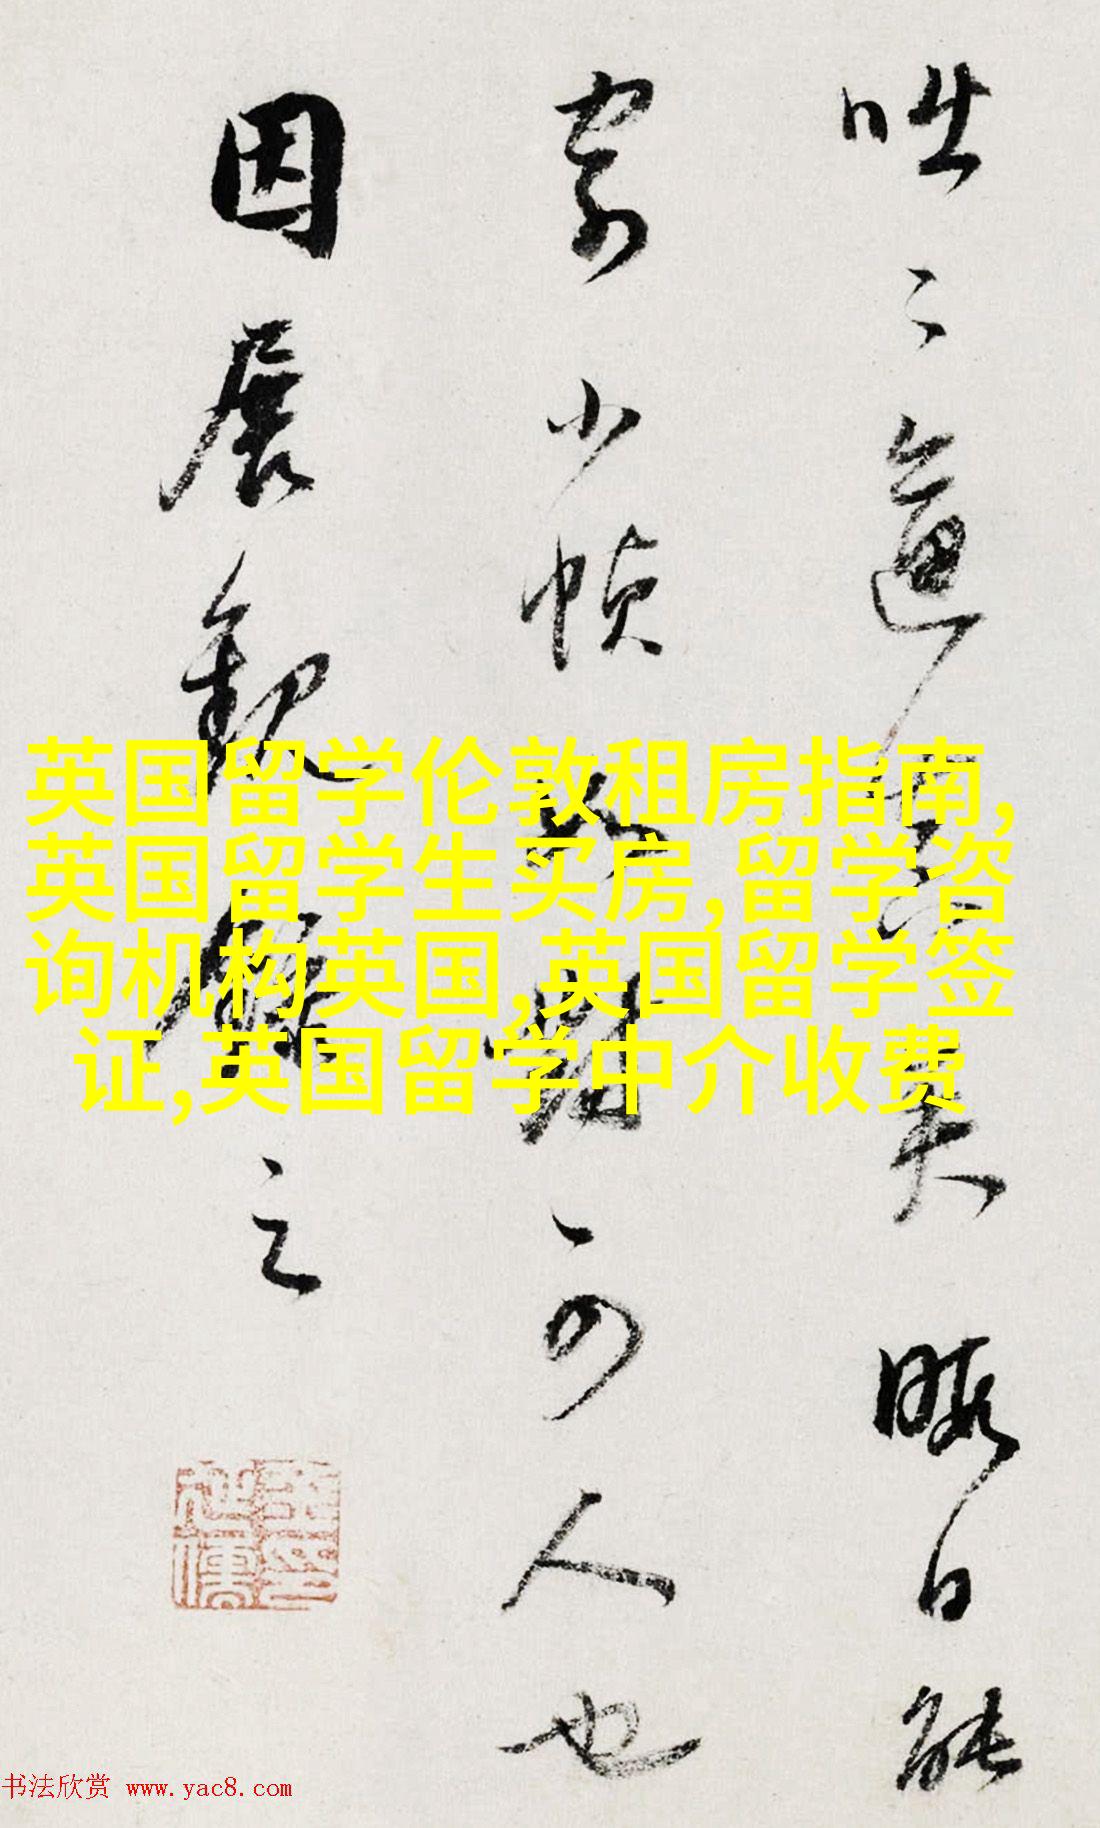 咄二逼真矣暇日能
家少帧如
可人也
因展观
之
英国留学伦敦租房指南,
英国留学生买房,留学咨
询机构英国,英国留学签
证,英国留学中介收费
书法欣赏 www.yac8.com